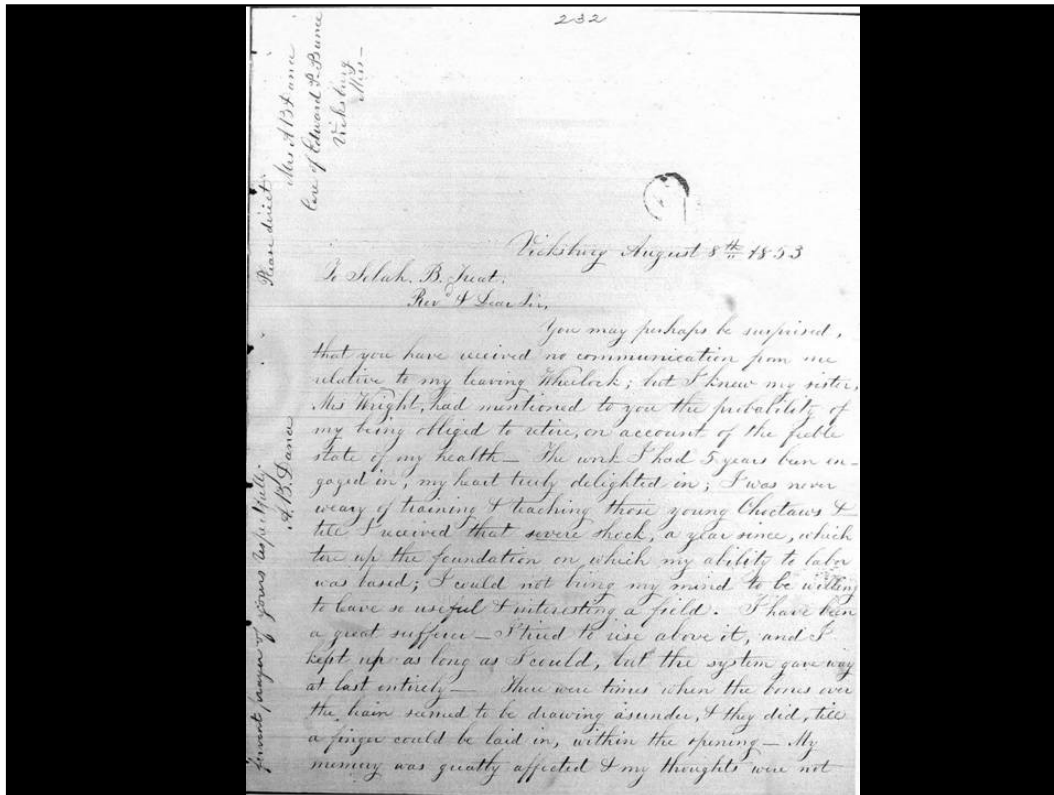 232
Please direct
Mrs A B Dance
Care of Edward P. Bunce
Vicksburg
Miss-
Vicksburg August 8th 1853
To Selah. B. Treat.
Revd & Dear Sir,
You may perhaps be surprised,
that you have received no communication from me
relative to my leaving Wheelock; but I knew my sister,
Mrs Wright, had mentioned to you the probability of
my being obliged to retire, on account of the feeble
state of my health— The work I had 5 years been en-
gaged in, my heart truly delighted in; I was never
weary of training & teaching those young Choctaws &
till I received that severe shock, a year since, which
tore up the foundation on which my ability to labor
was based; I could not bring my mind to be willing
to leave so useful & interesting a field. I have been
a great sufferer— I tried to rise above it, and I
kept up as long as I could, but the system gave way
at last entirely— There were times when the bones over
the brain seemed to be drawing asunder, & they did, till
a finger could be laid in, within the opening— My
memory was greatly affected & my thoughts were not
fervent prayer of yours respectfully
A. B. Dance